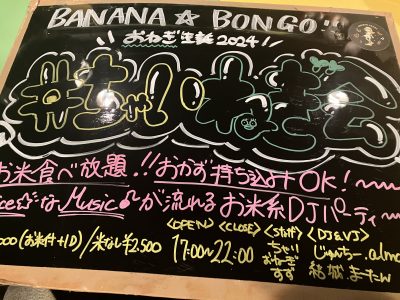 BANANA☆BONGO!!
おねぎ生誕2024
#ちゃいねぎ会
お米食べ放題!!おかず持ち込みOK!
ice☆な Music♪が流れるお米系DJパーティ〜
000(お米付+1D)/米なし¥2.500
<OPEN> <CLOSE>
17:00~22:00
<Staff>
ちゃい
おねーぎ
すず
<DJ&VJ>
じゅんちー.alma
結城.またん